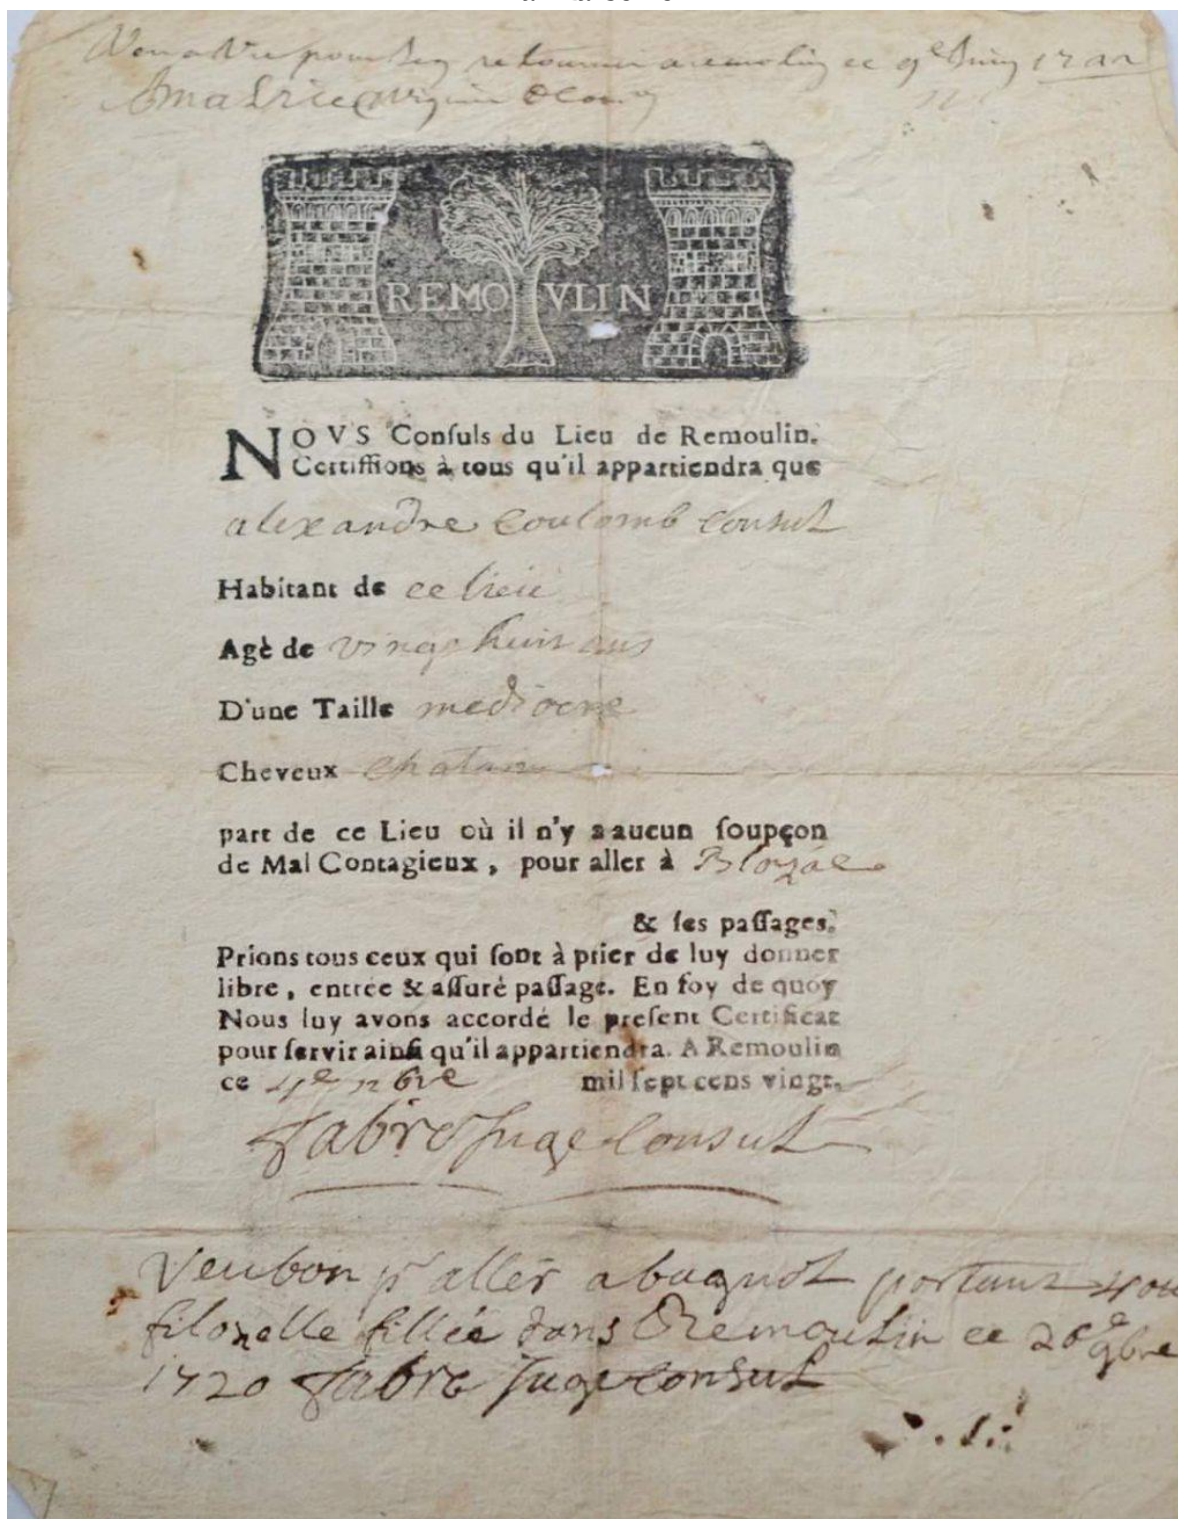 pour sen retourner a remoulin ce 9e Juin
REMOVLIN
NOVS Conſuls du Lieu de Remoulin.
Certiffions à tous qu'il appartiendra que
alexandre coulomb consul
Habitant de ce lieu
Agè de vingt huit ans
D'une Taille mediocre
Cheveux chatain
part de ce Lieu où il n'y a aucun ſoupçon
de Mal Contagieux, pour aller à Blozac
& ſes paſſages.
Prions tous ceux qui ſont à prier de luy donner
libre, entrée & aſſuré paſſage. En foy de quoy
Nous luy avons accordé le preſent Certificat
pour ſervir ainſi qu'il appartiendra. A Remoulin
ce bre mil ſept cens vingt.
fabre Juge Consul
Veu bon pr aller a bagnol portant
filozelle fillée dans Remoulin ce 26e 9bre
1720 fabre Juge consul